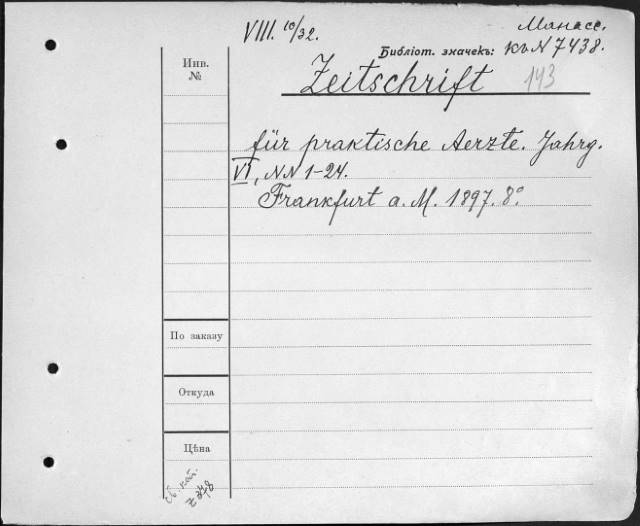 VIII. 10/32.
Манасс.
Библіот. значекъ: къ N 7438.
Инв. №
Zeitschrift 143
für praktische Aerzte. Jahrg.
VI, NN 1-24.
Frankfurt a. M. 1897. 8°
По заказу
Откуда
Цѣна